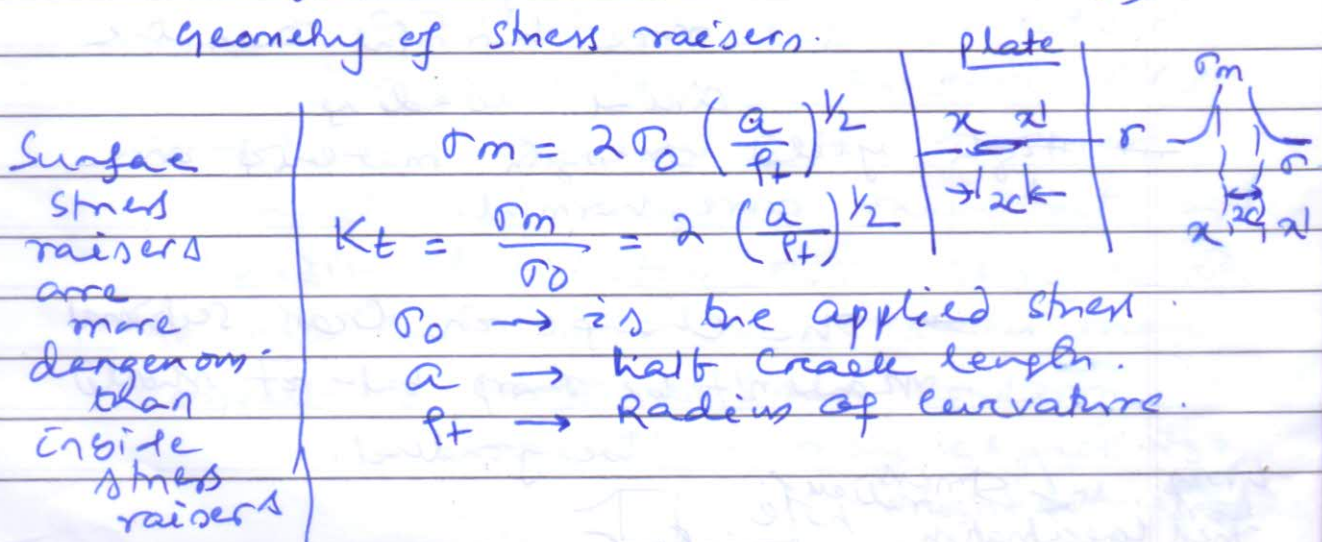 Geometry of stress raisers.
Surface
stress
raisers
are
more
dangerous
than
inside
stress
raisers
σm = 2σ0 (a/ρt)^1/2
Kt = σm/σ0 = 2 (a/ρt)^1/2
σ0 → is the applied stress.
a → half crack length.
ρt → Radius of curvature.
plate
x x'
σm
σ
x x'